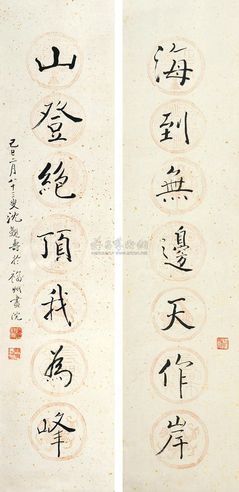 海到無邊天作岸
山登絕頂我為峰
己巳二月八十叟沈覲壽於福州畫院